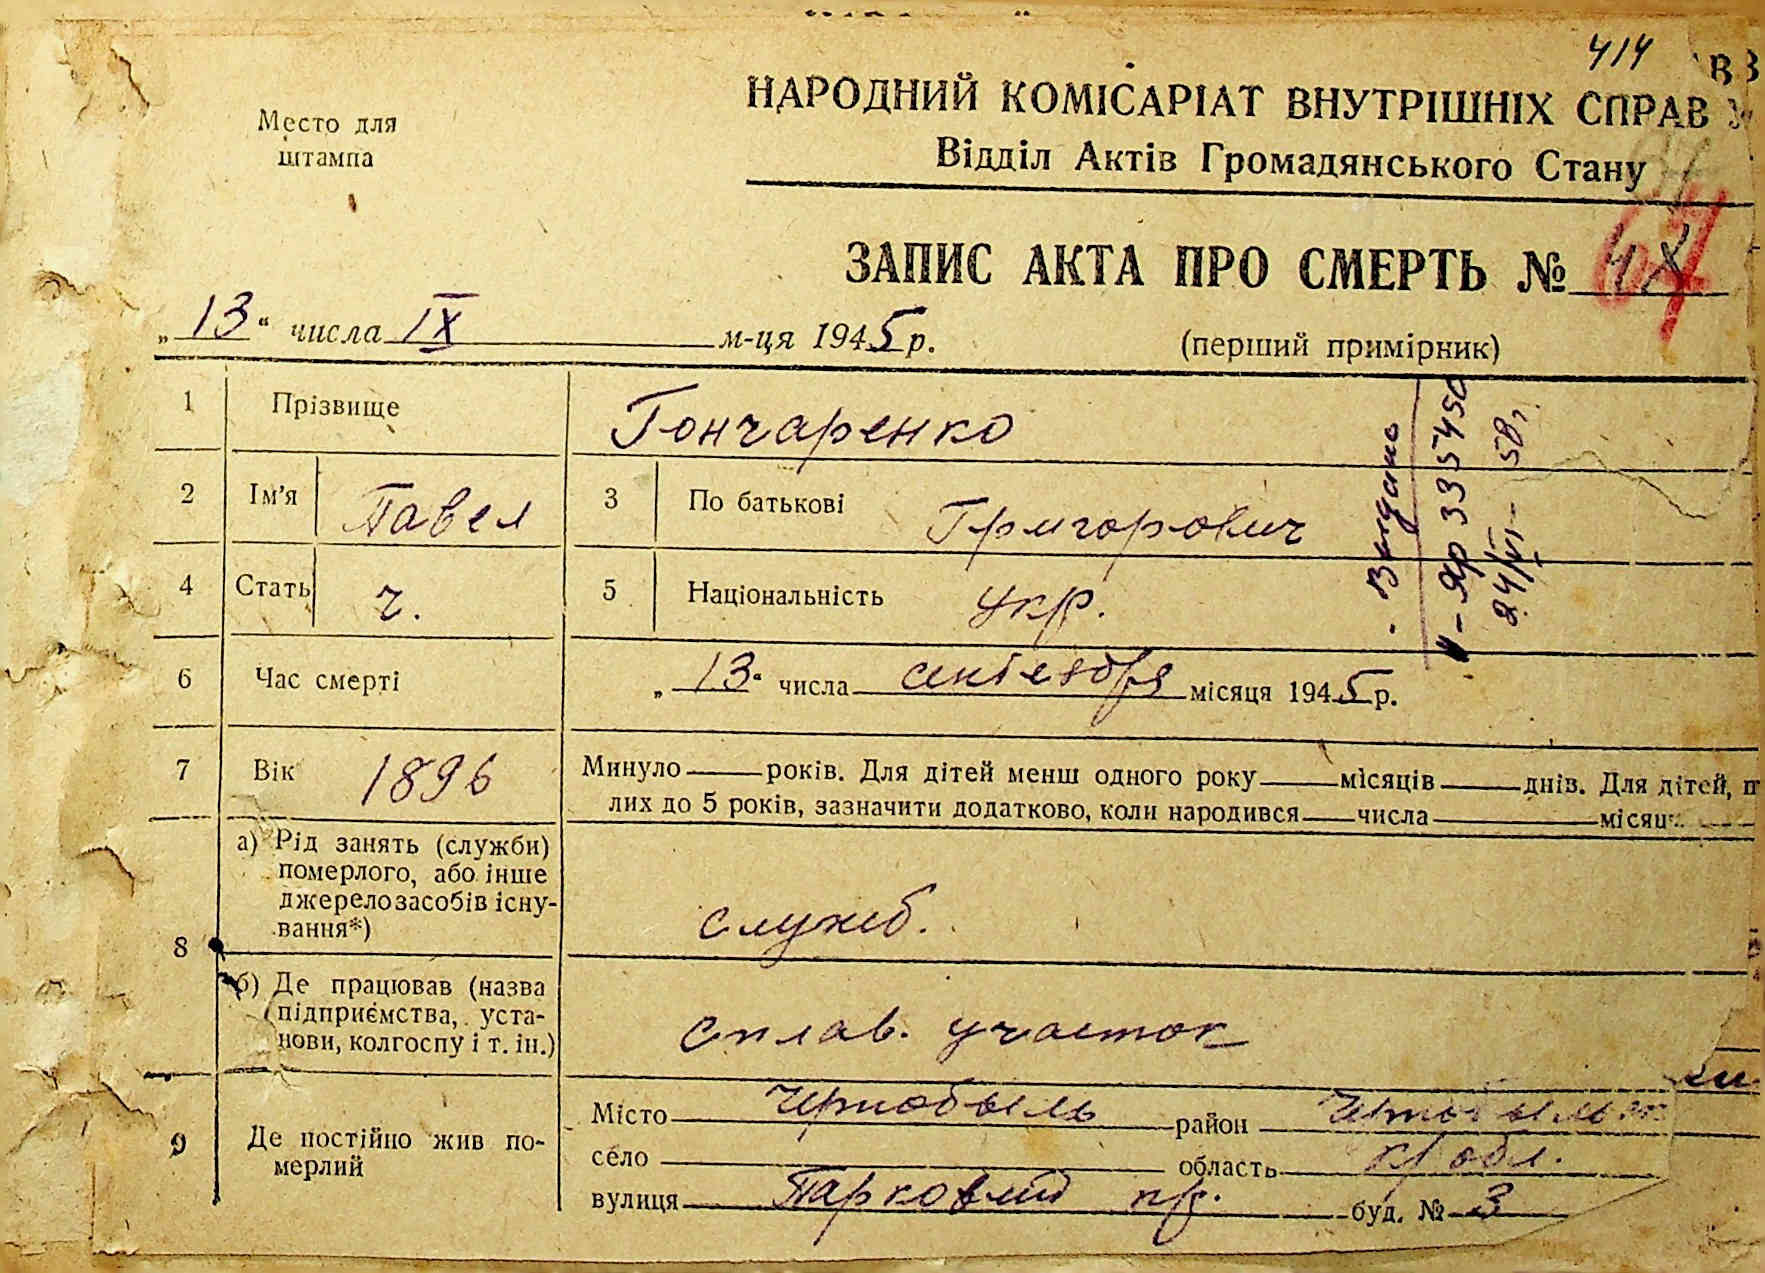 414
Место для
штампа
НАРОДНИЙ КОМІСАРІАТ ВНУТРІШНІХ СПРАВ
Відділ Актів Громадянського Стану
ЗАПИС АКТА ПРО СМЕРТЬ №
67
„13“ числа IX м-ця 1945 р.
(перший примірник)
1 Прізвище Гончаренко
2 Ім'я Павел 3 По батькові Григорович
4 Стать ч. 5 Національність укр.
6 Час смерті „13“ числа сентября місяця 1945 р.
7 Вік 1896 Минуло років. Для дітей менш одного року місяців днів. Для дітей, п
лих до 5 років, зазначити додатково, коли народився числа місяц
8 а) Рід занять (служби)
померлого, або інше
джерело засобів існу-
вання*)
служб.
б) Де працював (назва
підприємства, уста-
нови, колгоспу і т. ін.)
сплав. участок
9 Де постійно жив по-
мерлий
Місто Чернобыль район Чернобыльск
село область К обл.
вулиця Парковий пр. буд. № 3
Видано
ЯР 335450
24/VI - 58 г.